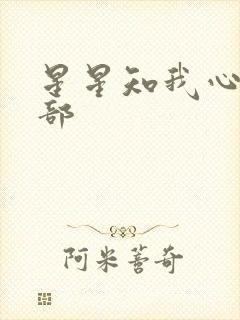 星星知我心
部
阿米蓍奇